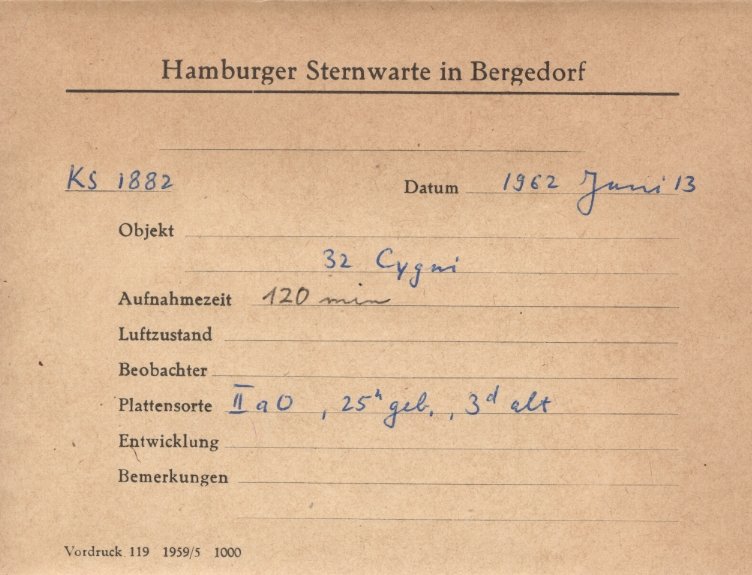 Hamburger Sternwarte in Bergedorf
KS 1882 Datum 1962 Juni 13
Objekt
32 Cygni
Aufnahmezeit 120 min
Luftzustand
Beobachter
Plattensorte II a O , 25ʰ geb. , 3ᵈ alt
Entwicklung
Bemerkungen
Vordruck 119 1959/5 1000